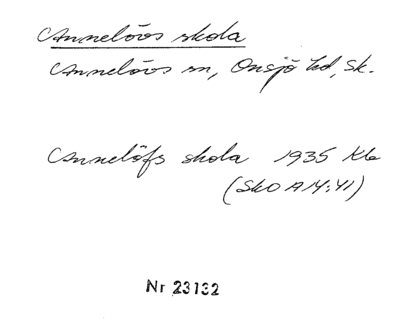 Annelövs skola
Annelövs sn, Onsjö hd, Sk.
Annelöfs skola 1935 Kb
(SkO A 14:41)
Nr 23132